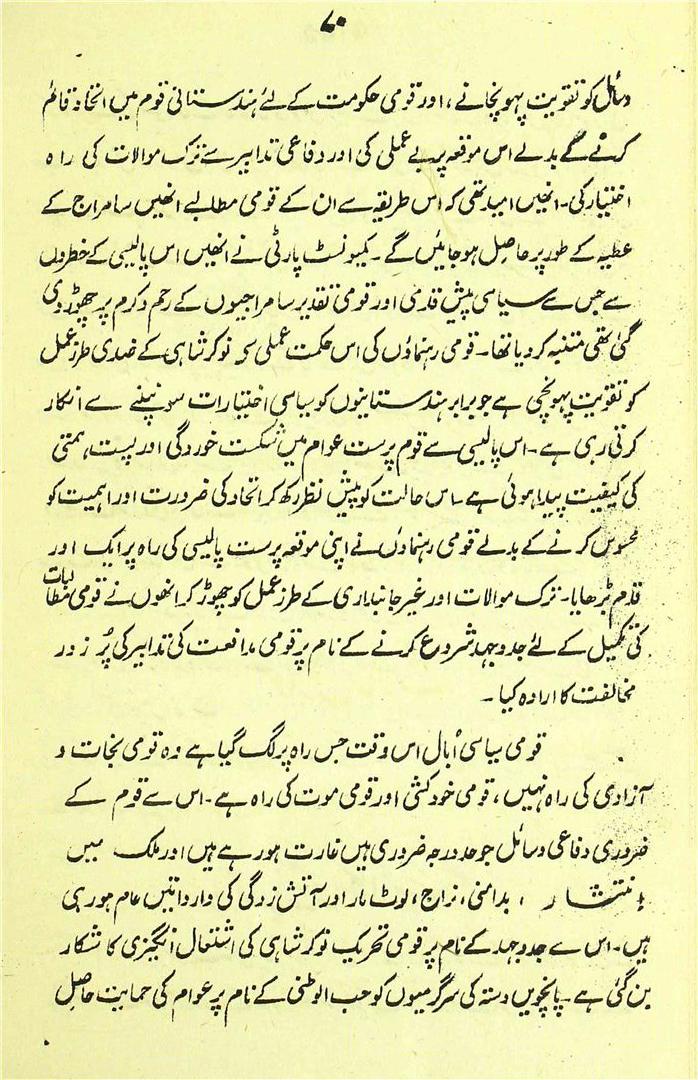 ۷۰
وسائل کو تقویت پہونچانے، اور قومی حکومت کے لئے ہندستانی قوم میں اتحاد قائم
کرنے کے بدلے اس موقعہ پر بے عملی کی اور دفاعی تدابیر سے ترک موالات کی راہ
اختیار کی۔ انھیں امید تھی کہ اس طریقہ سے ان کے قومی مطالبے انھیں سامراج کے
عطیہ کے طور پر حاصل ہو جائیں گے۔ کمیونسٹ پارٹی نے انھیں اس پالیسی کے خطروں
سے جس سے سیاسی پیش قدمی اور قومی تقدیر سامراجیوں کے رحم و کرم پر چھوڑ دی
گئی تھی متنبہ کر دیا تھا۔ قومی رہنماؤں کی اس حکمت عملی سے نوکر شاہی کے ضدی طرز عمل
کو تقویت پہونچی ہے جو برابر ہندستانیوں کو سیاسی اختیارات سونپنے سے انکار
کرتی رہی ہے۔ اس پالیسی سے قوم پرست عوام میں شکست خوردگی اور پست ہمتی
کی کیفیت پیدا ہوئی ہے۔ اس حالت کو پیش نظر رکھ کر اتحاد کی ضرورت اور اہمیت کو
محسوس کرنے کے بدلے قومی رہنماؤں نے اپنی موقعہ پرست پالیسی کی راہ پر ایک اور
قدم بڑھایا۔ ترک موالات اور غیر جانبداری کے طرز عمل کو چھوڑ کر انھوں نے قومی مطالبات
کی تکمیل کے لئے جدوجہد شروع کرنے کے نام پر قومی مدافعت کی تدابیر کی پُر زور
مخالفت کا ارادہ کیا۔
قومی سیاسی اُبال اس وقت جس راہ پر لگ گیا ہے وہ قومی نجات و
آزادی کی راہ نہیں، قومی خودکشی اور قومی موت کی راہ ہے۔ اس سے قوم کے
ضروری دفاعی وسائل جو حد درجہ ضروری ہیں غارت ہو رہے ہیں اور ملک میں
انتشار، بدامنی، نراج، لوٹ مار اور آتش زدگی کی وارداتیں عام ہو رہی
ہیں۔ اس سے جدوجہد کے نام پر قومی تحریک نوکر شاہی کی اشتعال انگیزی کا شکار
بن گئی ہے۔ پانچویں دستہ کی سرگرمیوں کو حب الوطنی کے نام پر عوام کی حمایت حاصل